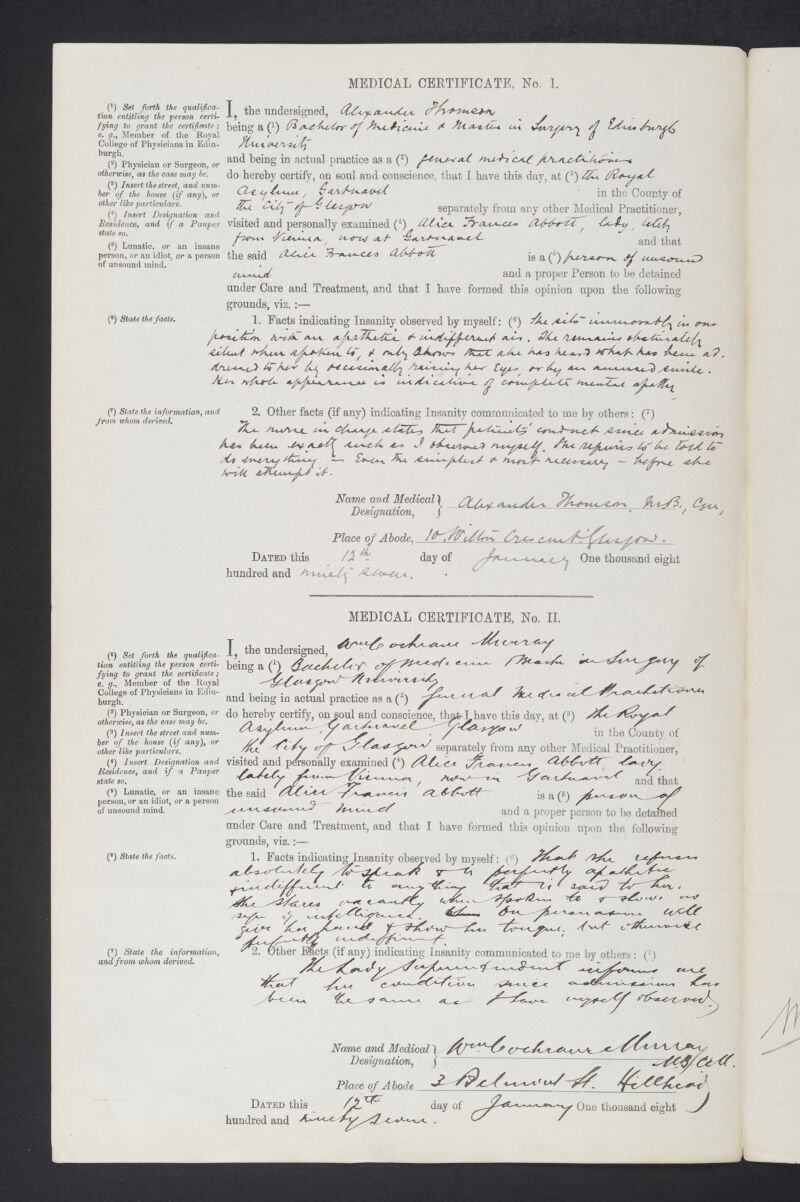 MEDICAL CERTIFICATE, No. I.
(¹) Set forth the qualifica-
tion entitling the person certi-
fying to grant the certificate;
e. g., Member of the Royal
College of Physicians in Edin-
burgh.
(²) Physician or Surgeon, or
otherwise, as the case may be.
(³) Insert the street, and num-
ber of the house (if any), or
other like particulars.
(⁴) Insert Designation and
Residence, and if a Pauper
state so.
(⁵) Lunatic, or an insane
person, or an idiot, or a person
of unsound mind.
I, the undersigned, Alexander Thomson
being a (¹) Bachelor of Medicine & Master in Surgery of Edinburgh
University
and being in actual practice as a (²) general medical practitioner
do hereby certify, on soul and conscience, that I have this day, at (³) the Royal
Asylum, Gartnavel in the County of
the City of Glasgow separately from any other Medical Practitioner,
visited and personally examined (⁴) Alice Frances Abbott, lady, lately
from Vienna, now at Gartnavel and that
the said Alice Frances Abbott is a (⁵) person of unsound
mind and a proper Person to be detained
under Care and Treatment, and that I have formed this opinion upon the following
grounds, viz. :—
(⁶) State the facts.
1. Facts indicating Insanity observed by myself: (⁶) She sits immovably in one
position with an apathetic & indifferent air. She remains obstinately
silent when spoken to, & only shows that she has heard what has been ad-
dressed to her by occasionally raising her Eyes, or by an amused smile.
Her whole appearance is indicative of complete mental apathy
(⁷) State the information, and
from whom derived.
2. Other facts (if any) indicating Insanity communicated to me by others: (⁷)
The nurse in charge states that patient's conduct since admission
has been exactly such as I observed myself. She requires to be told to
do everything — Even the simplest & most necessary — before she
will attempt it.
Name and Medical Designation, Alexander Thomson, M.B., C.M.,
Place of Abode, 10, Wilton Crescent Glasgow.
DATED this 12th day of January One thousand eight
hundred and ninety seven.
MEDICAL CERTIFICATE, No. II.
(¹) Set forth the qualifica-
tion entitling the person certi-
fying to grant the certificate;
e. g., Member of the Royal
College of Physicians in Edin-
burgh.
(²) Physician or Surgeon, or
otherwise, as the case may be.
(³) Insert the street and num-
ber of the house (if any), or
other like particulars.
(⁴) Insert Designation and
Residence, and if a Pauper
state so.
(⁵) Lunatic, or an insane
person, or an idiot, or a person
of unsound mind.
I, the undersigned, Wm Cochrane Murray
being a (¹) Bachelor of Medicine Master in Surgery of
Glasgow University
and being in actual practice as a (²) General Medical Practitioner
do hereby certify, on soul and conscience, that I have this day, at (³) the Royal
Asylum, Gartnavel, Glasgow in the County of
the City of Glasgow separately from any other Medical Practitioner,
visited and personally examined (⁴) Alice Francis Abbott, lady,
lately from Vienna, now in Gartnavel and that
the said Alice Francis Abbott is a (⁵) person of
unsound mind and a proper person to be detained
under Care and Treatment, and that I have formed this opinion upon the following
grounds, viz. :—
(⁶) State the facts.
1. Facts indicating Insanity observed by myself: (⁶) That she refuses
absolutely to speak & is perfectly apathetic
& indifferent to anything that is said to her.
She stares vacantly when spoken to & shows no
sign of intelligence. On persuasion will
give her hand & show her tongue, but otherwise
perfectly indifferent.
(⁷) State the information,
and from whom derived.
2. Other Facts (if any) indicating Insanity communicated to me by others: (⁷)
The Lady Superintendent informs me
that her condition since admission has
been the same as I have myself observed
Name and Medical Designation, Wm Cochrane Murray
MB/CM.
Place of Abode 3 Belmont St. Hillhead
DATED this 12th day of January One thousand eight
hundred and ninety seven.